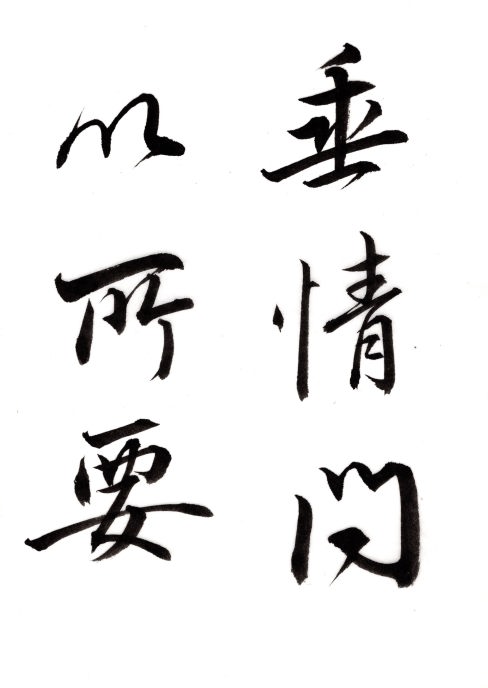 垂情問
以所要